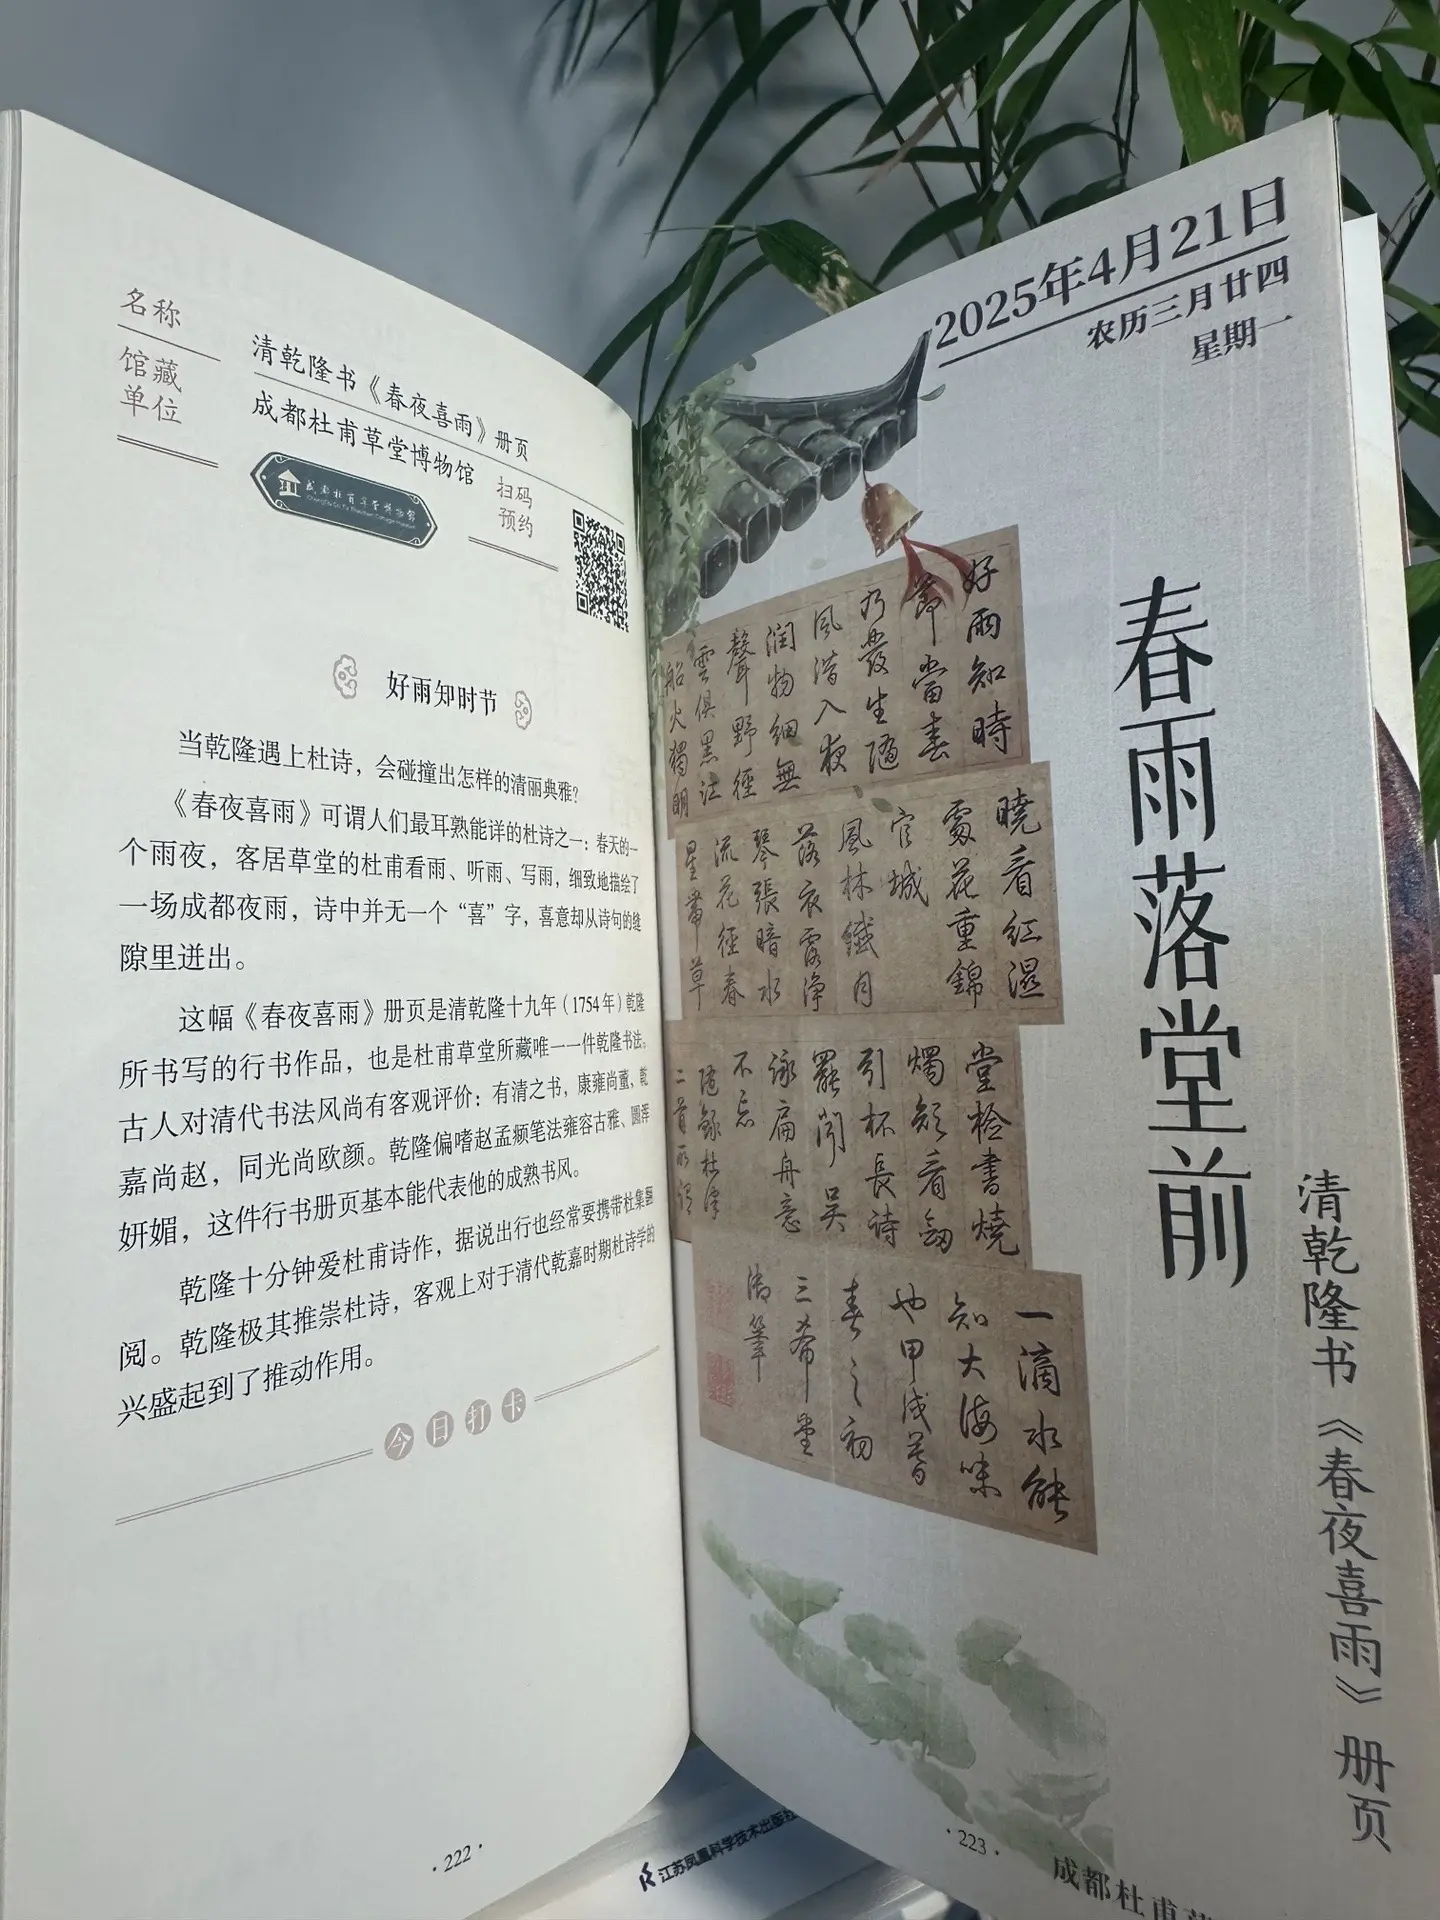 名称
清乾隆书《春夜喜雨》册页
馆藏
单位
成都杜甫草堂博物馆
扫码
预约
成都杜甫草堂博物馆
好雨知时节
当乾隆遇上杜诗，会碰撞出怎样的清丽典雅？
《春夜喜雨》可谓人们最耳熟能详的杜诗之一：春天的一
个雨夜，客居草堂的杜甫看雨、听雨、写雨，细致地描绘了
一场成都夜雨，诗中并无一个“喜”字，喜意却从诗句的缝
隙里迸出。
这幅《春夜喜雨》册页是清乾隆十九年（1754年）乾隆
所书写的行书作品，也是杜甫草堂所藏唯一一件乾隆书法。
古人对清代书法风尚有客观评价：有清之书，康雍尚董，乾
嘉尚赵，同光尚欧颜。乾隆偏嗜赵孟頫笔法雍容古雅、圆浑
妍媚，这件行书册页基本能代表他的成熟书风。
乾隆十分钟爱杜甫诗作，据说出行也经常要携带杜集翻
阅。乾隆极其推崇杜诗，客观上对于清代乾嘉时期杜诗学的
兴盛起到了推动作用。
今日打卡
·222·
2025年4月21日
农历三月廿四
星期一
春雨落堂前
清乾隆书《春夜喜雨》册页
好雨知時
節當春
乃發生隨
風潛入夜
潤物細無
聲野徑
雲俱黑江
船火獨明
曉看紅濕
處花重錦
官城
風林纖月
落衣露淨
琴張暗水
流花徑春
星帶草
堂檢書燒
燭短看劍
引杯長詩
罷聞吳
詠扁舟意
不忘
隨錄杜律
二首所謂
一滴水能
知大海味
也甲戌暮
春之初
三希堂
御筆
·223·
成都杜甫草
江苏凤凰科学技术出版社